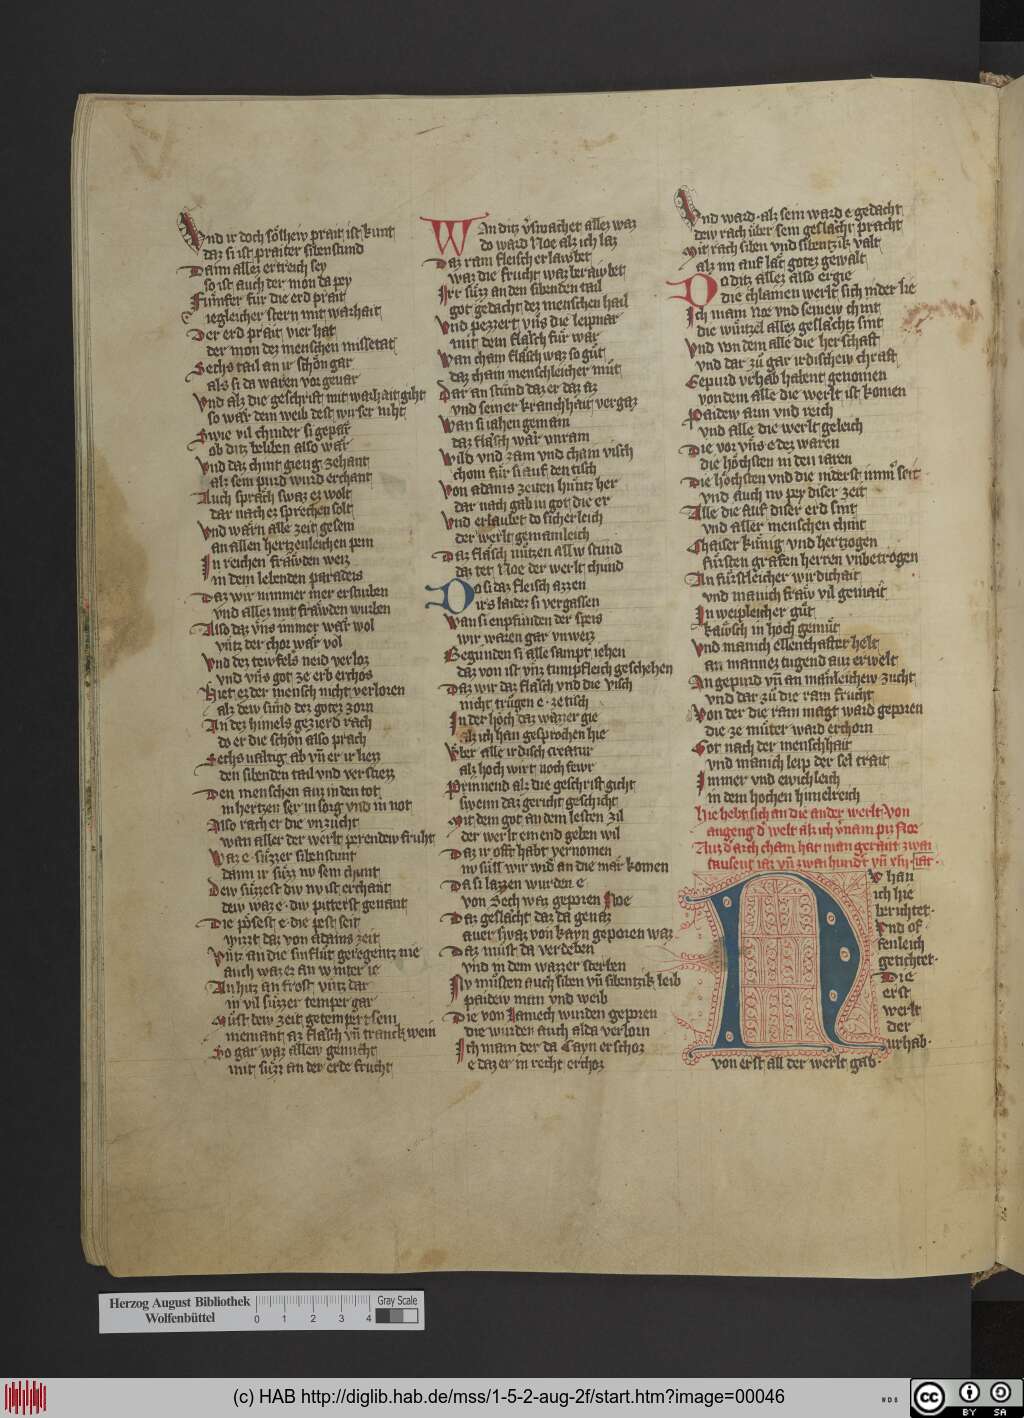 Vnd ir doch sölhew prait ist kunt
daz si ist praiter sibenstund
Dann allez ertreich sey
so ist auch der mon da pey
Fünfer für die erd prait
iegleicher stern mit warhait
Der erd prait vier hat
der mon dez menschen missetat
Sechs tail an ir schön gar
als si da waren vor gevar
Vnd alz die geschrift mit warhait giht
so wär dem weib dest wirser niht
Swie vil chinder si gepär
ob ditz beliben also wär
Vnd daz chint gieng zehant
alz sein purd wurd erchant
Auch sprach swaz ez wolt
dar nach ez sprechen solt
Vnd warn alle zeit gesein
an allen hertzenleichen pein
In reichen frawden weiz
in dem lebenden paradeis
Daz wir nimmer mer ersturben
vnd allez mit frawden wurben
Also daz vns immer wär wol
vntz der chor wär vol
Vnd dez tewfels neid verloz
vnd vns got ze erb erchos
Hiet ez der mensch nicht verloren
alz dew sund dez gotez zorn
An dez himels gezierd rach
do er die schön also prach
Sechsualtig ab vn er ir liezz
den sibenden tail vnd verstiezz
Den menschen auz in den tot
in hertzen ser in sorg vnd in not
Also rach er die vnzucht
wan aller der werlt perendew fruht
Waz e süzzer sibenstunt
dann ir süzz nv sein chunt
Dew süzzest div nv ist erchant
dew waz e div pitterst genant
Die pösest e die pest seit
wirt daz von adams zeit
Vntz an die sinflüt geregentz nie
auch waz ez an winter ie
An hitz an frost vntz dar
in vil süzzer temper gar
Müst dew zeit getempert sein
niemant az flasch vn tranck wein
So gar waz allew genucht
mit süzz an der erde frucht
Wan ditz verswachet allez waz
do ward Noe alz ich laz
Daz ram fleisch erlawbet
waz die frucht waz berawbet
Irr süzz an den sibenden tail
got gedacht dez menschen hail
Vnd pezzert vns die leipnar
mit dem flasch für war
Wan cham flasch waz so güt
daz cham menschleicher müt
Dar an stünd daz er daz az
vnd seiner kranchhait vergaz
Wan si iahen gemain
daz flasch wär vnrain
Wild vnd zam vnd cham visch
chom für si auf den tisch
Von adams zeiten huntz her
dar nach gab in got die er
Vnd erlaubet do sicherleich
der werlt gemainleich
Daz flasch nützen allw stund
daz tet Noe der werlt chund
Do si daz fleisch azzen
Jr's laidez si vergassen
Wan si enpfunden der speis
wir waren gar vnweiz
Begunden si alle sampt iehen
daz von ist vnz tumpfleich geschehen
Daz wir daz flasch vnd die visch
nicht trügen e ze tisch
In der höch daz wazzer gie
alz ich han gesprochen hie
Vber alle irdisch creatur
alz hoch wirt noch fewr
Prinnend alz die geschrift gicht
swenn daz gericht geschicht
Mit dem got an dem lesten zil
der werlt ein end geben wil
Daz ir offt habt vernomen
nv süll wir wid an die mär komen
Da si lazzen wurden e
von Sech waz geporen Noe
Daz geslächt daz da genaz
auer swaz von kayn geporen waz
Daz must da verdeben
vnd in dem wazzer sterben
Nv müsten auch siben vn sibentzik leib
paidew man vnd weib
Die von Lamech wurden geporen
die wurden auch alda verlorn
Ich main der da Cayn erschoz
e daz er in recht erchoz
Vnd ward alz sein ward e gedacht
dew rach über sein geslächt pracht
Mit rach siben vnd sibentzik valt
alz im auf lat gotez gewalt
Do ditz allez also ergie
die chlamen werlt sich nider lie
Ich main Noe vnd seinew chint
die würtzel allez geslachtz sint
Vnd von dem alle die herschaft
vnd dar zü gar irdischew chraft
Gepürd vrhab habent genomen
von dem alle die werlt ist komen
Paidew arm vnd reich
vnd alle die werlt geleich
Die vor vns e dez waren
die höchsten in den iaren
Die höchsten vnd die niderst immer seit
vnd auch nv pey diser zeit
Alle die auf diser erd sint
vnd aller menschen chint
Chaiser künig vnd hertzogen
fürsten grafen herren vnbetrogen
An fürstleicher wirdichait
vnd manich fraw vil gemait
In weipleicher güt
kawsch in hoch gemüt
Vnd manich ellenthafter helt
an mannez tugend auz erwelt
An gepurd vn an manleichew zucht
vnd dar zü die rain frucht
Von der die rain magt ward geporen
die ze müter ward erchorn
Got nach der menschhait
vnd manich leip der sel trait
Immer vnd ewichleich
in dem hochen himelreich
Hie hebt sich an die ander werlt von
angeng d welt alz ich vnam piz Noe
Auz d arch cham hat man geraitt zwai
tausent iar vn zwaihundt vn xlii iar
Nv han
ich hie
berichtet
Vnd of
fenleich
getichtet
Die
erst
werlt
der
urhab
von erst all der werlt gab
Herzog August Bibliothek
Wolfenbüttel
0 1 2 3 4
Gray Scale
(c) HAB http://diglib.hab.de/mss/1-5-2-aug-2f/start.htm?image=00046
WDB
cc BY SA